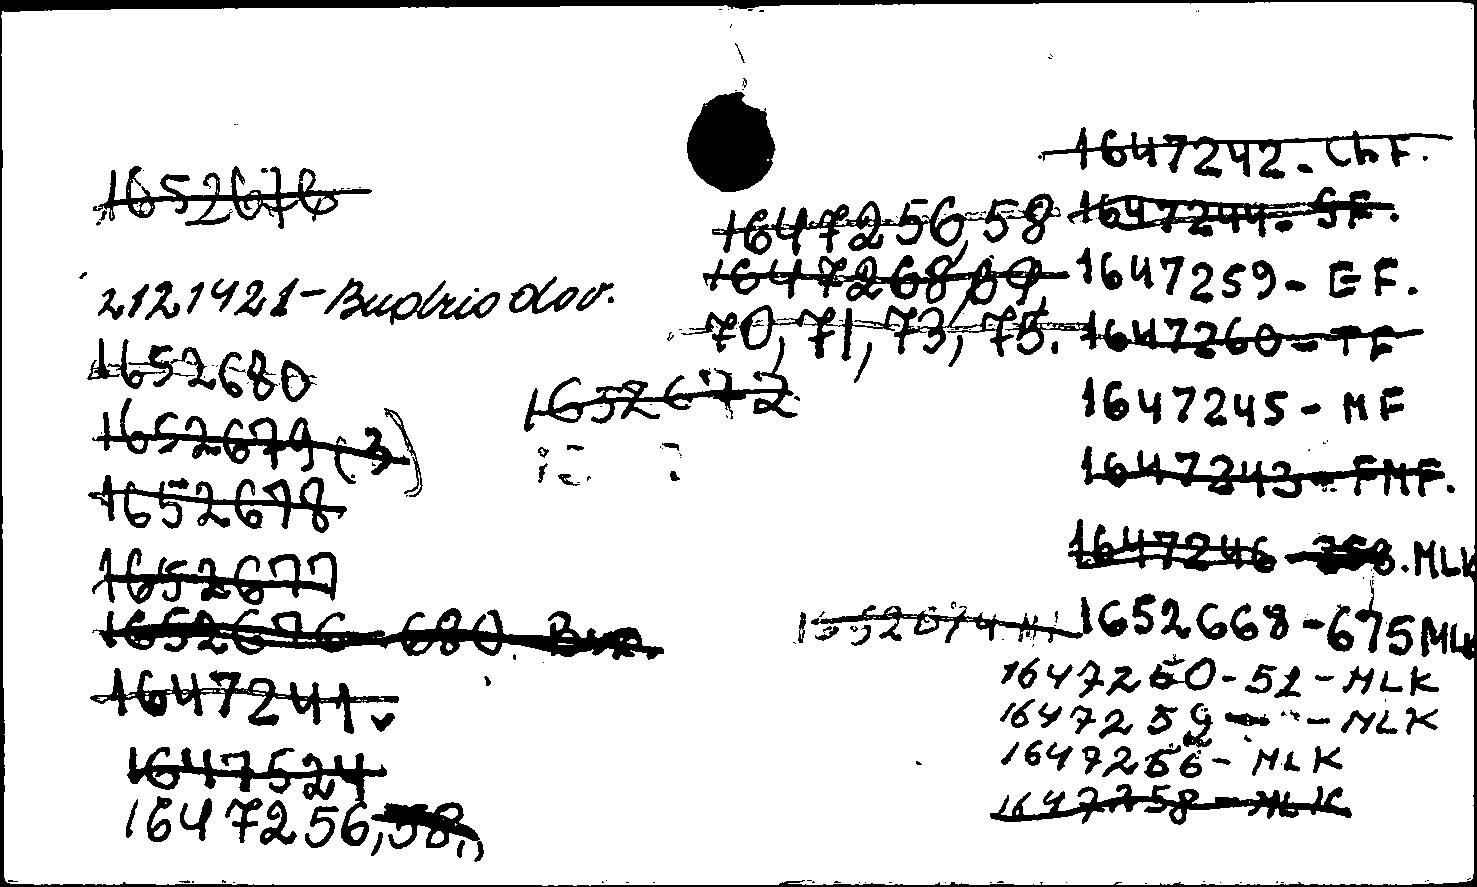 1652676
2121421 - Budrio dov.
1652680
1652679 (3)
1652678
1652677
1652676 - 680
1647241.
1647524
1647256, 58,
1647256, 58
1647268, 69,
70, 71, 73, 75.
1652672
1647242 - ChF.
1647244 - SF.
1647259 - EF.
1647260 - TF
1647245 - MF
1647243 - FMF.
1647246 - MLK
1652674
1652668 - 675 MLK
1647250 - 52 - MLK
1647259 - MLK
1647256 - MLK
1647258 - MLK